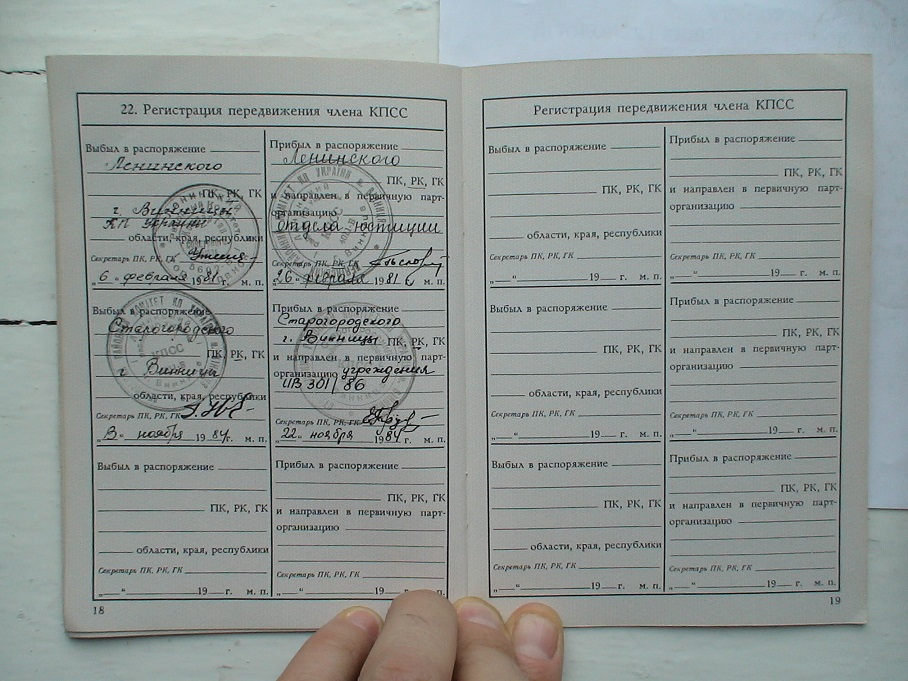 22. Регистрация передвижения члена КПСС
Выбыл в распоряжение
Ленинского
ПК, РК, ГК
г. Винницы
КП Украины
области, края, республики
Секретарь ПК, РК, ГК
„6“ февраля 1981 г. м. п.
Прибыл в распоряжение
Ленинского
ПК, РК, ГК
и направлен в первичную парт-
организацию
отдела юстиции
Секретарь ПК, РК, ГК
„26“ февраля 1981 г. м. п.
Выбыл в распоряжение
Старогородского
КПСС
ПК, РК, ГК
г. Винница
области, края, республики
Секретарь ПК, РК, ГК
ноября 1984г. м. п.
Прибыл в распоряжение
Старогородского
г. Винницы ПК, РК, ГК
и направлен в первичную парт-
организацию учреждения
ИВ 301/86
Секретарь ПК, РК, ГК
„22“ ноября 1984 г. м. п.
Выбыл в распоряжение
ПК, РК, ГК
области, края, республики
Секретарь ПК, РК, ГК
„ “ 19 г. м. п.
Прибыл в распоряжение
ПК, РК, ГК
и направлен в первичную парт-
организацию
Секретарь ПК, РК, ГК
„ “ 19 г. м. п.
18
Регистрация передвижения члена КПСС
Выбыл в распоряжение
ПК, РК, ГК
области, края, республики
Секретарь ПК, РК, ГК
„ “ 19 г. м. п.
Прибыл в распоряжение
ПК, РК, ГК
и направлен в первичную парт-
организацию
Секретарь ПК, РК, ГК
„ “ 19 г. м. п.
Выбыл в распоряжение
ПК, РК, ГК
области, края, республики
Секретарь ПК, РК, ГК
„ “ 19 г. м. п.
Прибыл в распоряжение
ПК, РК, ГК
и направлен в первичную парт-
организацию
Секретарь ПК, РК, ГК
„ “ 19 г. м. п.
Выбыл в распоряжение
ПК, РК, ГК
области, края, республики
Секретарь ПК, РК, ГК
„ “ 19 г. м. п.
Прибыл в распоряжение
ПК, РК, ГК
и направлен в первичную парт-
организацию
Секретарь ПК, РК, ГК
„ “ 19 г. м. п.
19